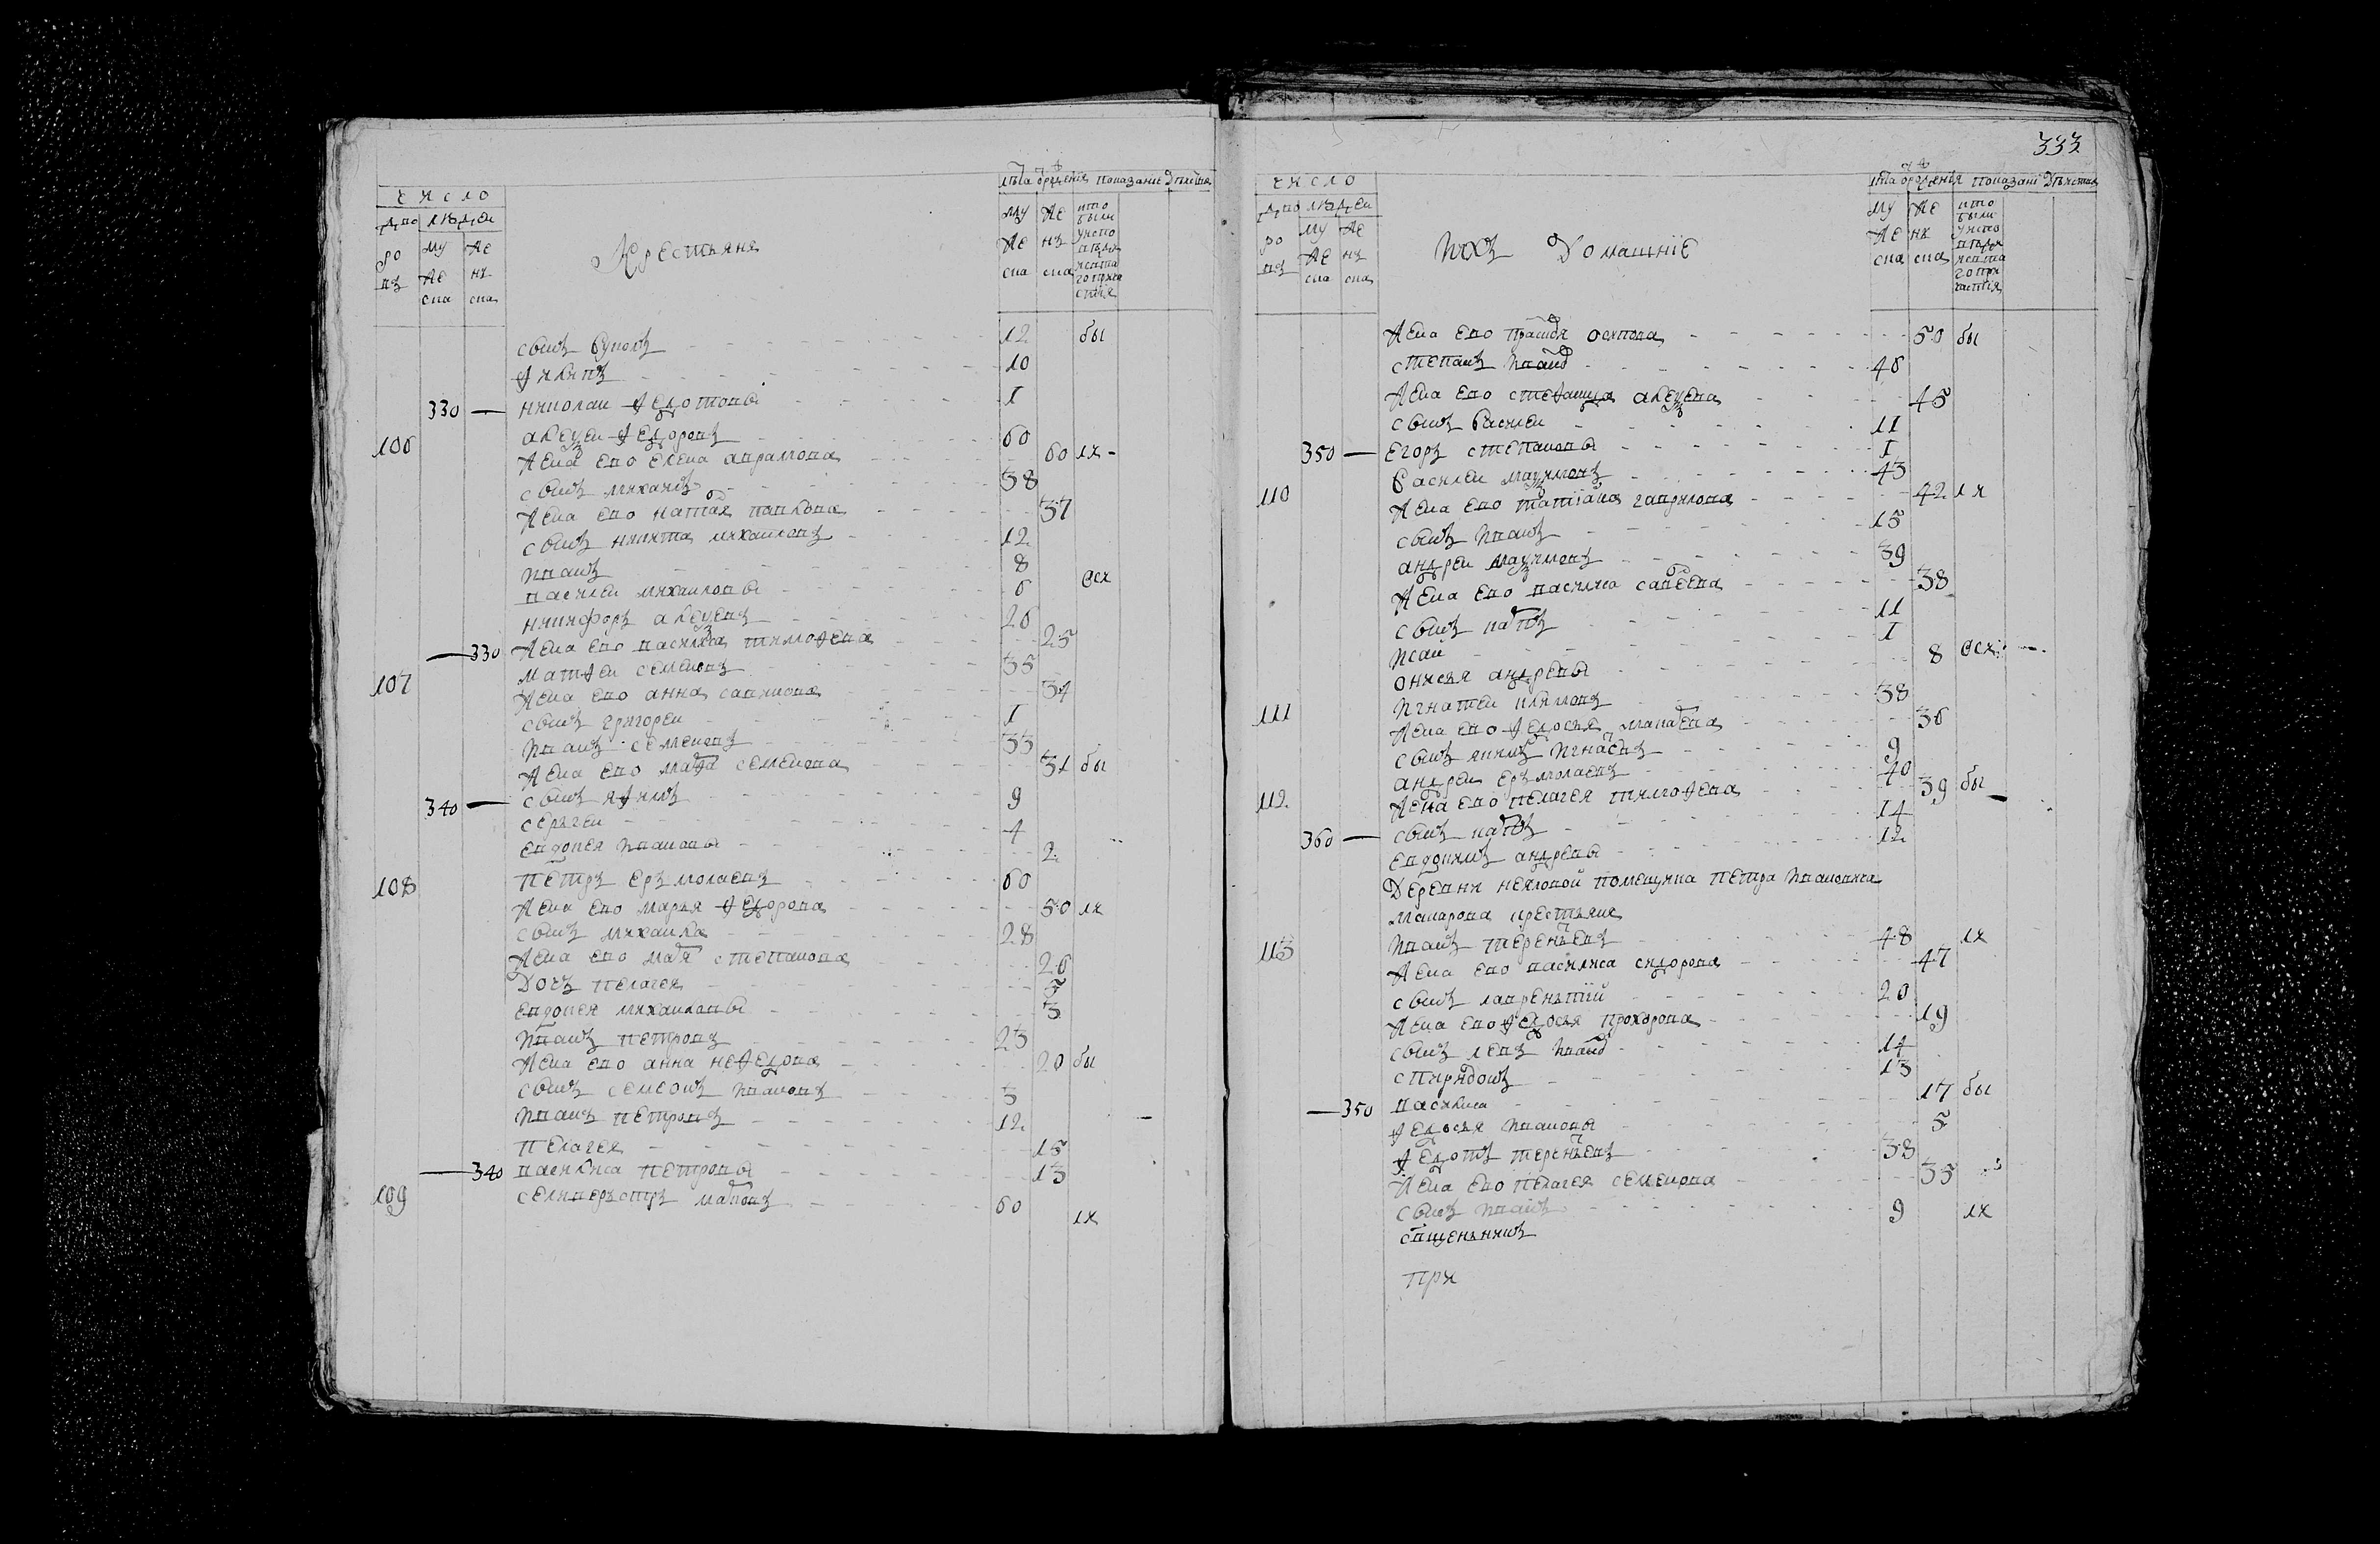 число
дворовъ людей
мужеска женска
Крестьяне
лѣта от рожденія показаніе дѣйства
мужеска женска кто были у исповѣди и святаго причастія
сынъ Вуколъ 12 бы
Филипъ 10
330 — николаи Федотовы 1
106 алеѯеи Федоровъ 60
жена ево елена аврамова 60 их
сынъ михаилъ 38
жена ево наталя павлова 37
сынъ никита михаиловъ 12
иванъ 8
василеи михаиловы 6 оси
никифоръ алеѯевъ 26
— 330 жена ево василиса тимофева 25
107 матфеи семеновъ 35
жена ево анна савилова 34
сынъ григореи 1
иванъ семеновъ 33
жена ево марфа семенова 31 бы
340 — сынъ яфимъ 9
сергеи 4
евдокея ивановы 2
108 петръ ермолаевъ 60
жена ево марья Федорова 50 их
сынъ михаила 28
жена ево марья степанова 26
дочь пелагея 5
евдокея михаиловы 3
иванъ петровъ 23
жена ево анна нефедова 20 бы
сынъ семеонъ ивановъ 3
иванъ петровъ 12
пелагея 15
— 340 василиса петровы 13
109 селиверстръ 60 их
333
число
дворовъ людей
мужеска женска
ихъ домашніе
лѣта от рожденія показаніе дѣйства
мужеска женска кто были у исповѣди и святаго причастія
жена ево осипова 50 бы
степанъ ивановъ 46
жена ево стефанида алеѯева 45
сынъ василеи 11
350 — егоръ степановы 1
110 василеи маѯимовъ 43
жена ево татіана гаврилова 42 их
сынъ иванъ 15
андреи маѯимовъ 39
жена ево василиса савелева 38
сынъ 11
исаи 1
онисья андревы 8 оси
111 игнатеи климовъ 38
жена ево федосья макарева 36
сынъ якимъ игнатевъ 9
112 андреи ермолаевъ 40
жена ево пелагея тимофева 39 бы
360 — сынъ 14
евдокимъ андревы 12
деревни неяловой помещика петра ивановича
макарова крестьяне
113 иванъ терентьевъ 48 их
жена ево василиса сидорова 47
сынъ лаврентій 20
жена ево федосья прохорова 19
сынъ левъ ивановъ 14
спиридонъ 13
— 350 василиса 17 бы
федосья ивановы 5
федотъ терентьевъ 38
жена ево пелагея семенова 35
сынъ иванъ 9 их
священникъ
при